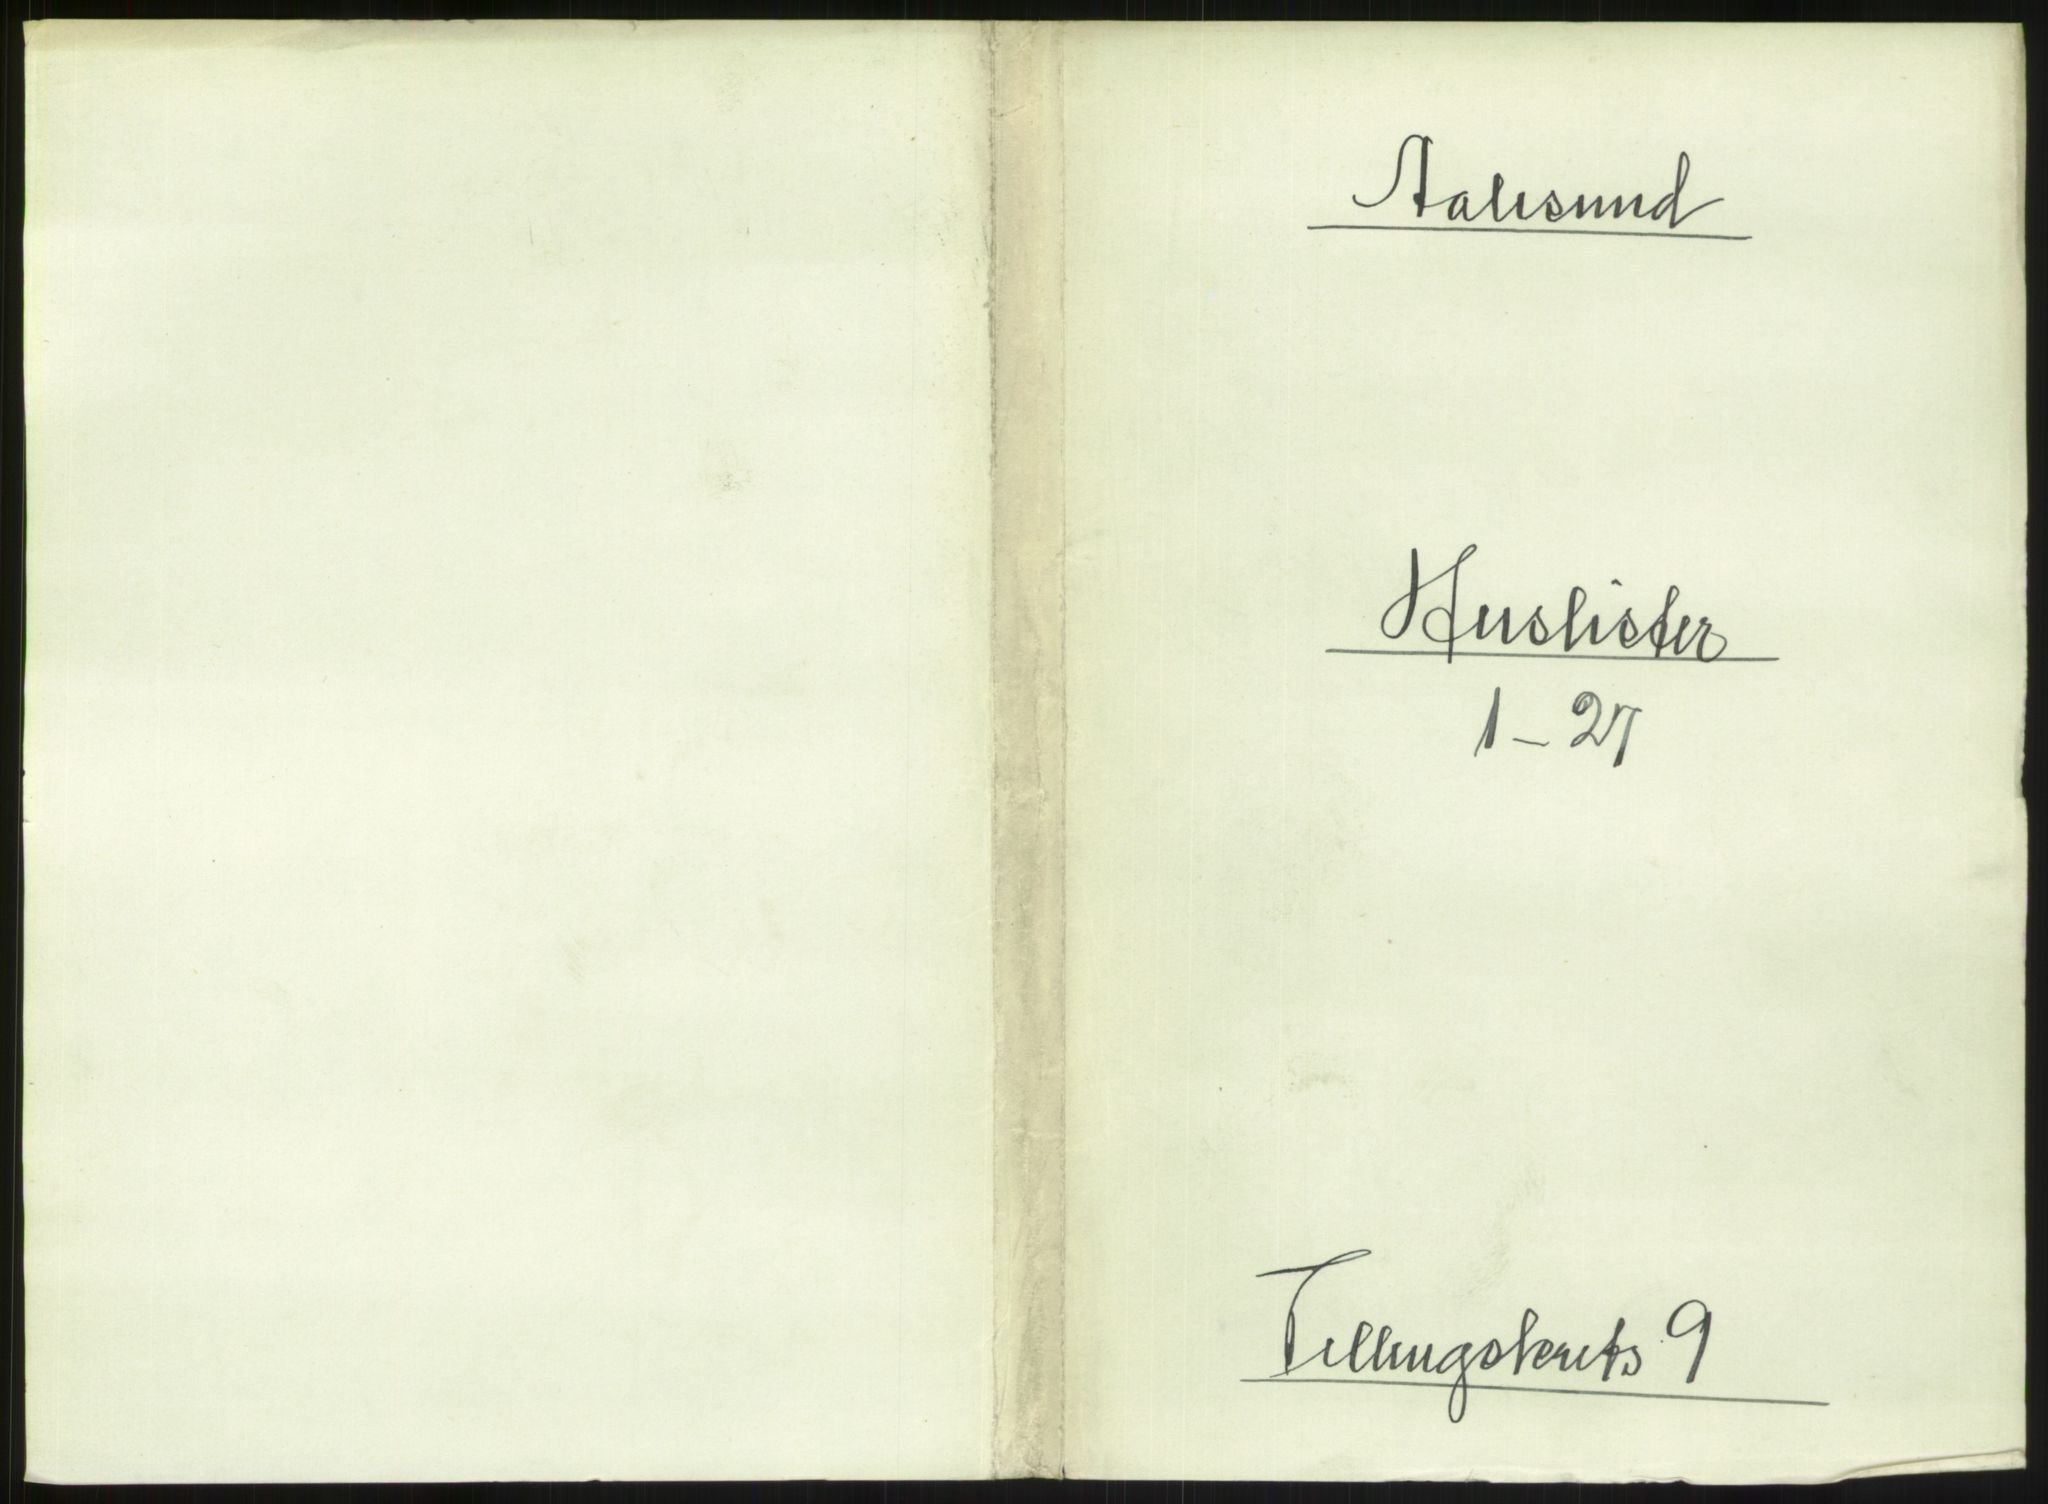 Aalesund
Huslister
1 - 27
Tellingskrets 9